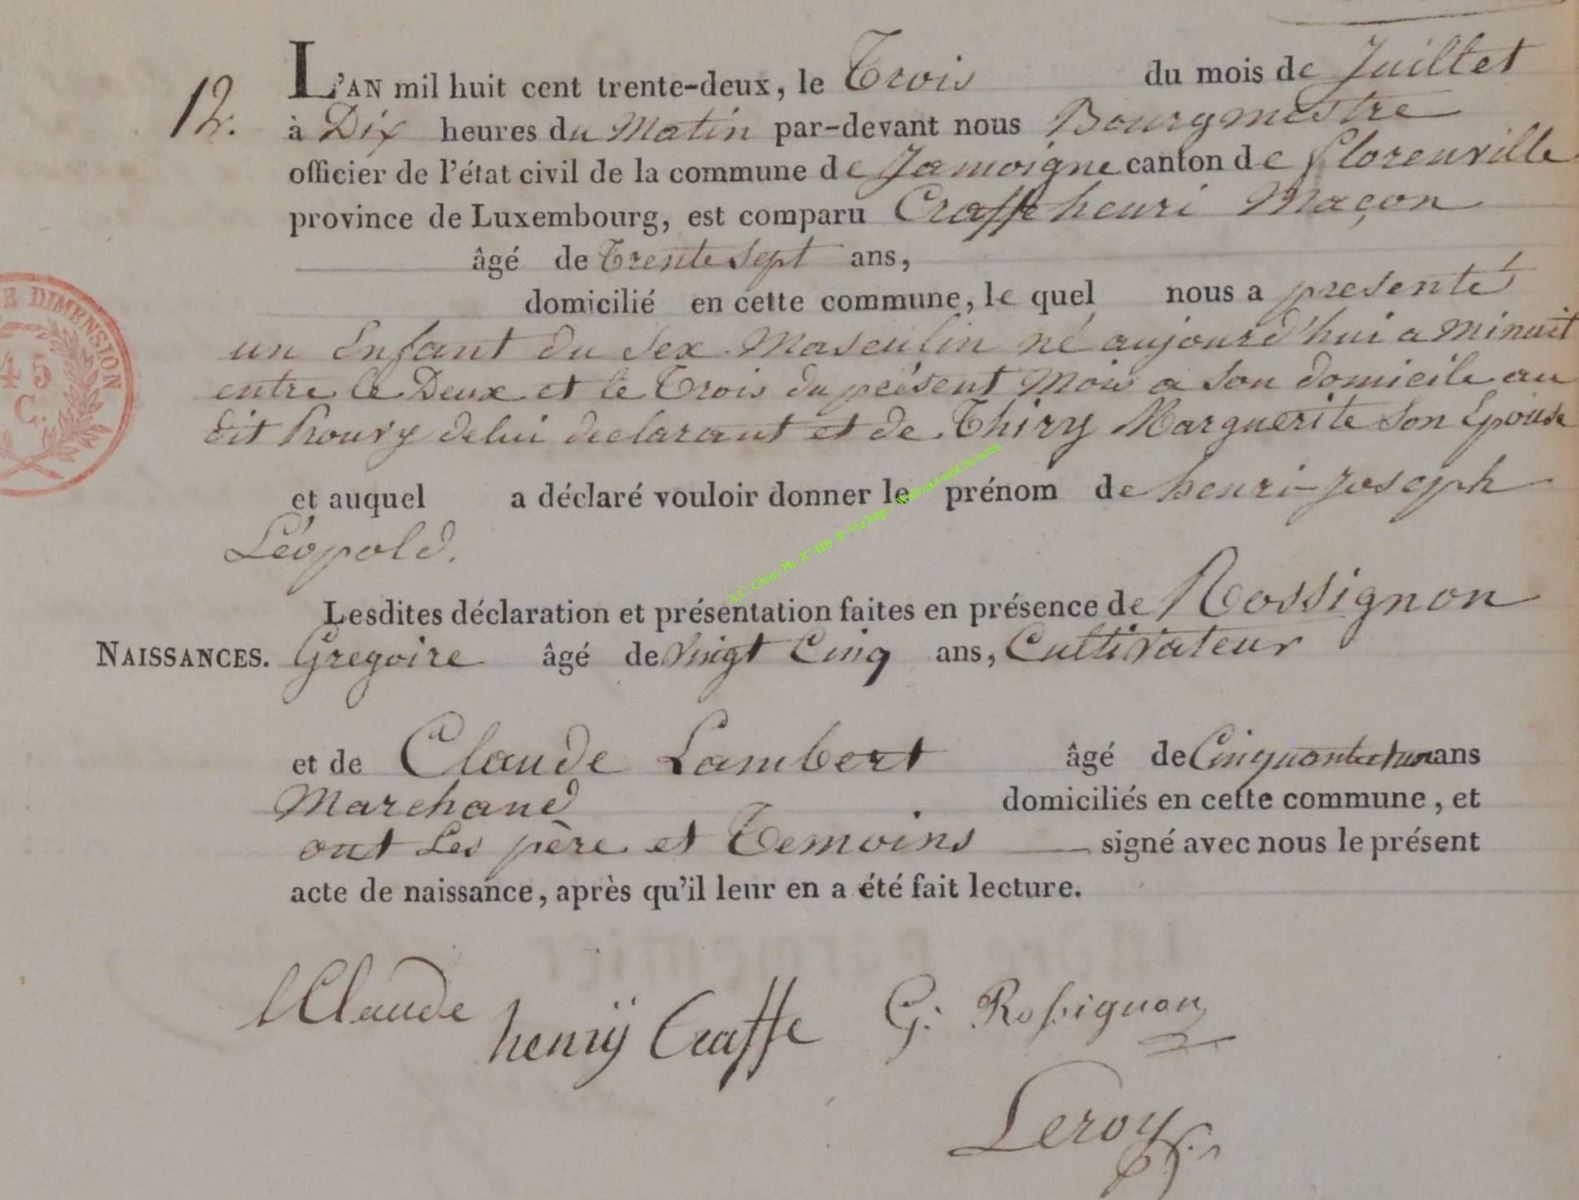 12.
L'AN mil huit cent trente-deux, le Trois du mois de Juillet
à Dix heures du Matin par-devant nous Bourgmestre
officier de l'état civil de la commune de Jamoigne canton de florenville
province de Luxembourg, est comparu Craffe henri Maçon
âgé de Trente Sept ans,
domicilié en cette commune, le quel nous a presenté
un Enfant du Sex Masculin né aujourd'hui a minuit
entre le Deux et le Trois du present Mois a son domicile au
dit delui declarant et de Thiry Marguerite Son Epouse
et auquel a déclaré vouloir donner le prénom de henri-Joseph
Léopold.
Lesdites déclaration et présentation faites en présence de Rossignon
NAISSANCES. Gregoire âgé de Vingt Cinq ans, Cultivateur
et de Claude Lambert âgé de ans
Marchand domiciliés en cette commune, et
ont Les père et Temoins signé avec nous le présent
acte de naissance, après qu'il leur en a été fait lecture.
LClaude henrÿ Craffe G: Rossignon
Leroy
E DIMENSION
45
C.
A.C. Chiny Ph. JC-HB